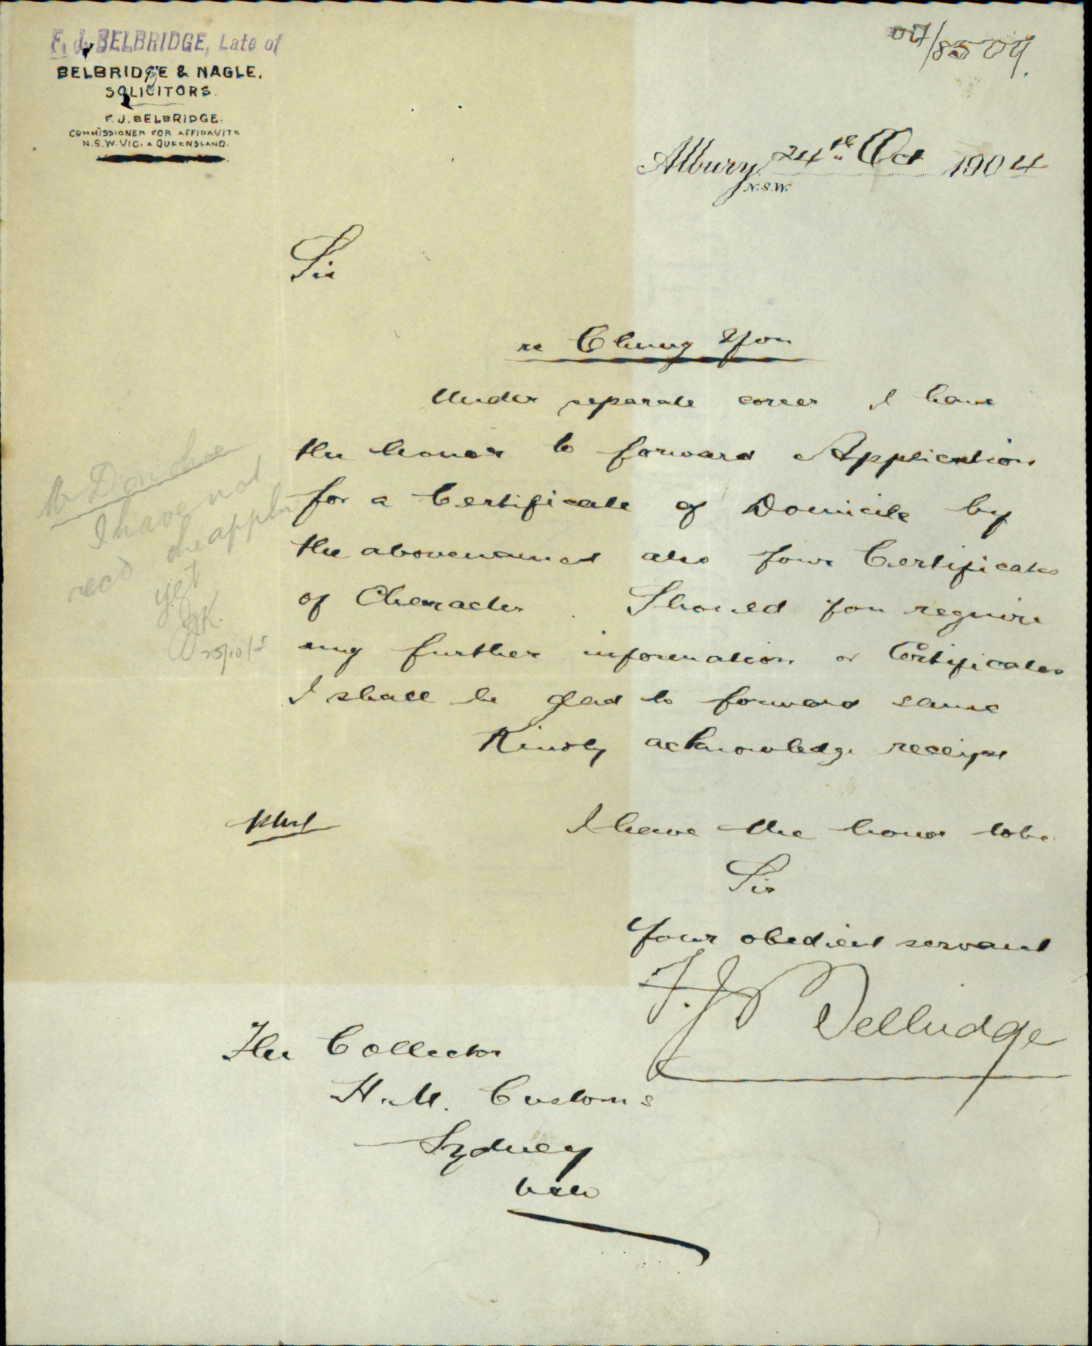 F. J. BELBRIDGE, Late of
BELBRIDGE & NAGLE,
SOLICITORS.
F. J. BELBRIDGE.
COMMISSIONER FOR AFFIDAVITS
N.S.W. VIC. & QUEENSLAND.
04/8509.
Albury 24th Oct 1904
N.S.W.
Sir
re Chung You
Under separate cover I have
the honor to forward Application
for a Certificate of Domicile by
the abovenamed also four Certificates
of Character. Should you require
any further information or Certificates
I shall be glad to forward same
Kindly acknowledge receipt
I have
not
recd the appln
yet
I have the honor to be
Sir
Your obedient servant
F. J. Belbridge
The Collector
H. M. Customs
Sydney